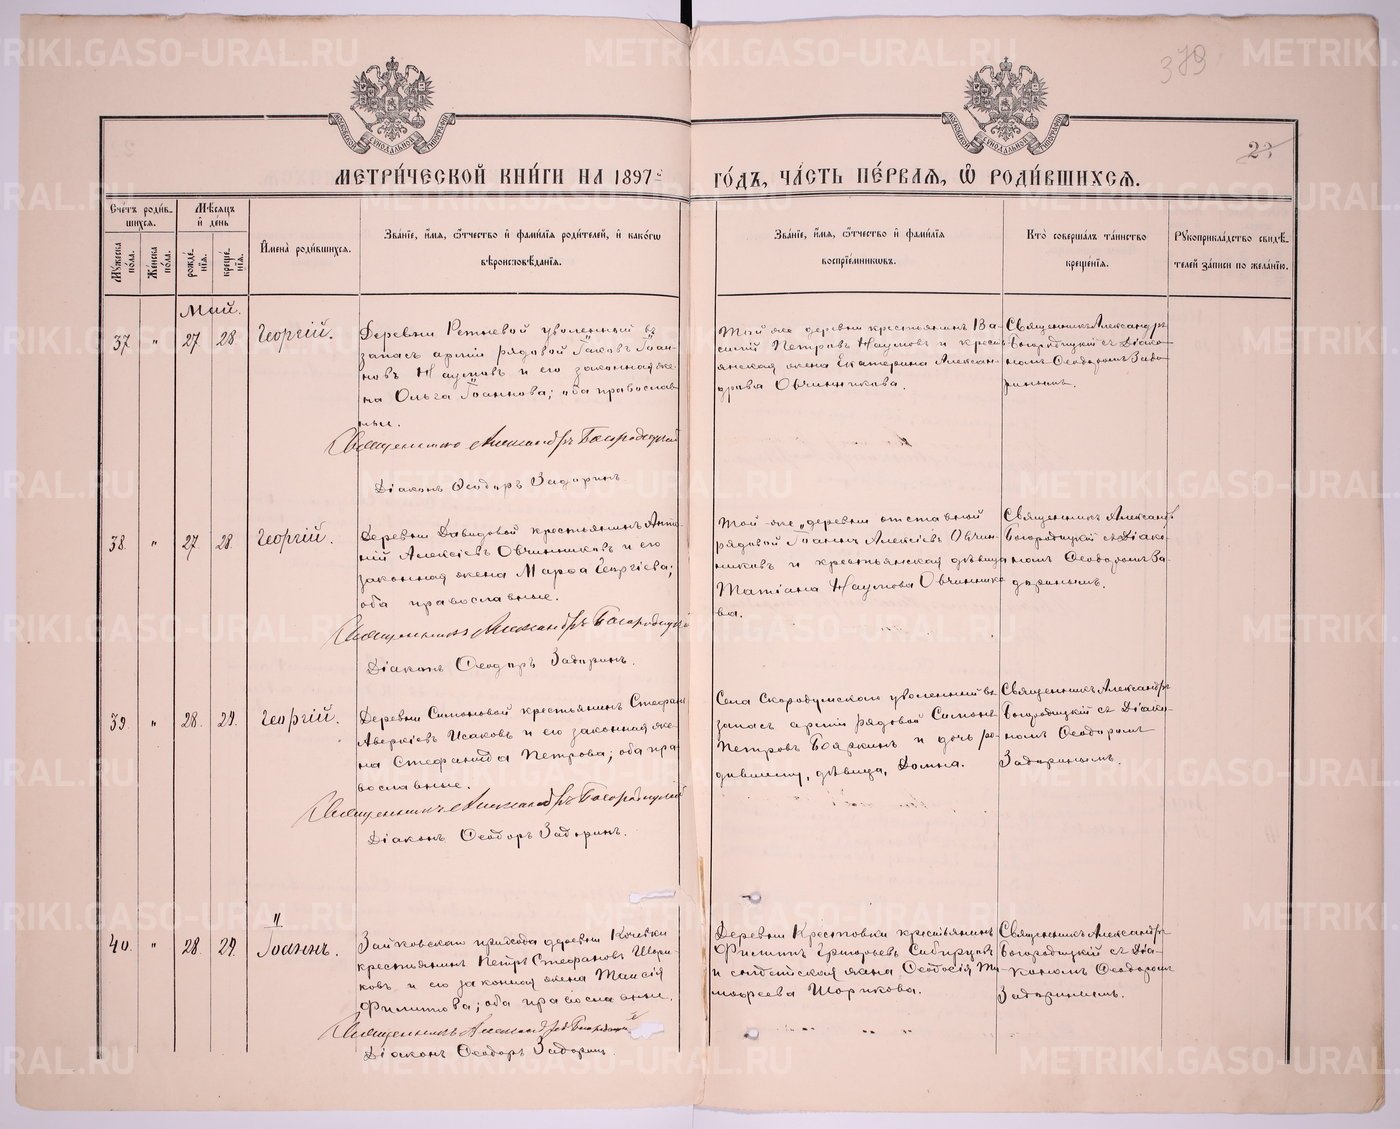 379
23
МОСКОВСКАЯ СУНОДАЛЬНАЯ ТИПОГРАФІЯ
МОСКОВСКАЯ СУНОДАЛЬНАЯ ТИПОГРАФІЯ
МЕТРИ́ЧЕСКОЙ КНИ́ГИ НА 1897 ГО́ДЪ, ЧА́СТЬ ПЕ́РВАЯ, Ѡ РОДИ́ВШИХСЯ.
Сче́тъ роди́вшихся.
Му́жеска по́ла.
Же́нска по́ла.
Мѣ́сяцъ и҆ де́нь
рожде́нїя.
креще́нїя.
И҆мена̀ роди́вшихся.
Зва́нїе, и҆́мя, ѻ҆́тчество и҆ фамилі́я роди́телей, и҆ како́гѡ
вѣроисповѣ́данїя.
Зва́нїе, и҆́мя, ѻ҆́тчество и҆ фамилі́я
воспрїе́мниковъ.
Кто̀ соверша́лъ та́инство
креще́нїя.
Рꙋкоприкла́дство свидѣ́-
телей за́писи по жела́нїю.
Май.
37. " 27 28 Георгій.
Деревни Ретневой уволенный въ
запасъ арміи рядовой Іаковъ Іоан-
новъ Наумовъ и его законная же-
на Ольга Іоаннова; оба православ-
ные.
Священникъ Александръ Богородицкій
Діаконъ Ѳеодоръ Задоринъ
Той же деревни крестьянинъ Ва-
силій Петровъ Наумовъ и кресть-
янская жена Екатерина Алексан-
дрова Овчинникова.
Священникъ Александръ
Богородицкій съ Діако-
номъ Ѳеодоромъ Задо-
ринымъ.
38. " 27. 28. Георгій.
Деревни Давидовой крестьянинъ Анто-
ній Алексіевъ Овчинниковъ и его
законная жена Марѳа Георгіева;
оба православные.
Священникъ Александръ Богородицкій
Діаконъ Ѳеодоръ Задоринъ.
Той-же деревни отставной
рядовой Іоаннъ Алексіевъ Овчин-
никовъ и крестьянская дѣвица
Татіана Наумова Овчиннико-
ва.
Священникъ Александръ
Богородицкій съ Діако-
номъ Ѳеодоромъ За-
доринымъ.
39. " 28. 29. Георгій.
Деревни Симоновой крестьянинъ Стефанъ
Аверкіевъ Исаковъ и его законная же-
на Стефанида Петрова; оба пра-
вославные.
Священникъ Александръ Богородицкій
Діаконъ Ѳеодоръ Задоринъ.
Села Скородумскаго уволенный въ
запасъ арміи рядовой Симонъ
Петровъ Бояркинъ и дочь ро-
дившему, дѣвица, Домна.
Священникъ Александръ
Богородицкій съ Діако-
номъ Ѳеодоромъ
Задоринымъ.
40. " 28. 29. Іоаннъ.
Зайковскаго прихода деревни Кочевки
крестьянинъ Петръ Стефановъ Шори-
ковъ и его законная жена Таисія
Филиппова; оба православные.
Священникъ Александръ Богородицкій
Діаконъ Ѳеодоръ Задоринъ.
Деревни Крестовки крестьянинъ
Филиппъ Григорьевъ Сибирцевъ
и жена Ѳеодосія Ти-
моѳеева Шорикова.
Священникъ Александръ
Богородицкій съ Діа-
кономъ Ѳеодоромъ
Задоринымъ.
METRIKI.GASO-URAL.RU